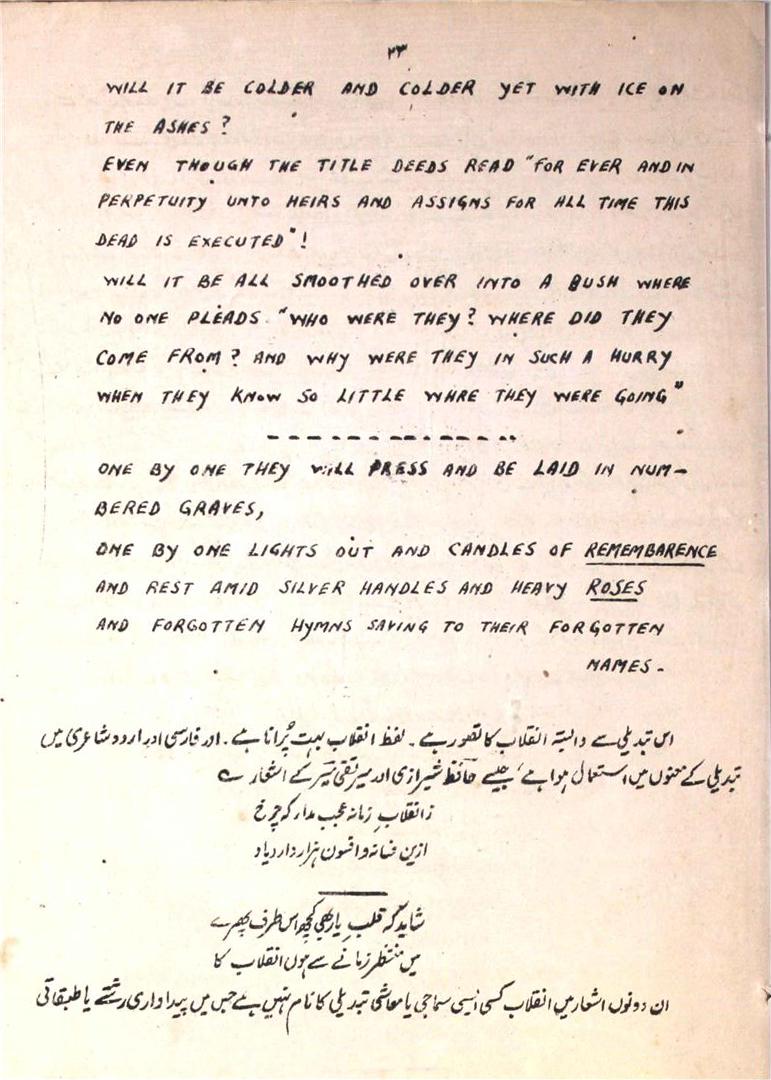 ۲۳
WILL IT BE COLDER AND COLDER YET WITH ICE ON
THE ASHES?
EVEN THOUGH THE TITLE DEEDS READ "FOR EVER AND IN
PERPETUITY UNTO HEIRS AND ASSIGNS FOR ALL TIME THIS
DEAD IS EXECUTED"!
WILL IT BE ALL SMOOTHED OVER INTO A BUSH WHERE
NO ONE PLEADS "WHO WERE THEY? WHERE DID THEY
COME FROM? AND WHY WERE THEY IN SUCH A HURRY
WHEN THEY KNOW SO LITTLE WHRE THEY WERE GOING"
ONE BY ONE THEY WILL PRESS AND BE LAID IN NUM-
BERED GRAVES,
ONE BY ONE LIGHTS OUT AND CANDLES OF REMEMBARENCE
AND REST AMID SILVER HANDLES AND HEAVY ROSES
AND FORGOTTEN HYMNS SAVING TO THEIR FORGOTTEN
NAMES-
اس تبدیلی سے وابستہ انقلاب کا تصور ہے۔ لفظ انقلاب بہت پُرانا ہے۔ اور فارسی اور اردو شاعری میں
تبدیلی کے معنوں میں استعمال ہوا ہے، جیسے حافظ شیرازی اور میر تقی میر کے اشعار ے
ز انقلابِ زمانہ عجب مدار کہ چرخ
ازین فسانہ و افسون ہزار دارد یاد
شاید کہ قلبِ یار بھی کچھ اس طرف پھرے
میں منتظر زمانے سے ہوں انقلاب کا
ان دونوں اشعار میں انقلاب کسی ایسی سماجی یا معاشی تبدیلی کا نام نہیں ہے جس میں پیداواری رشتے یا طبقاتی